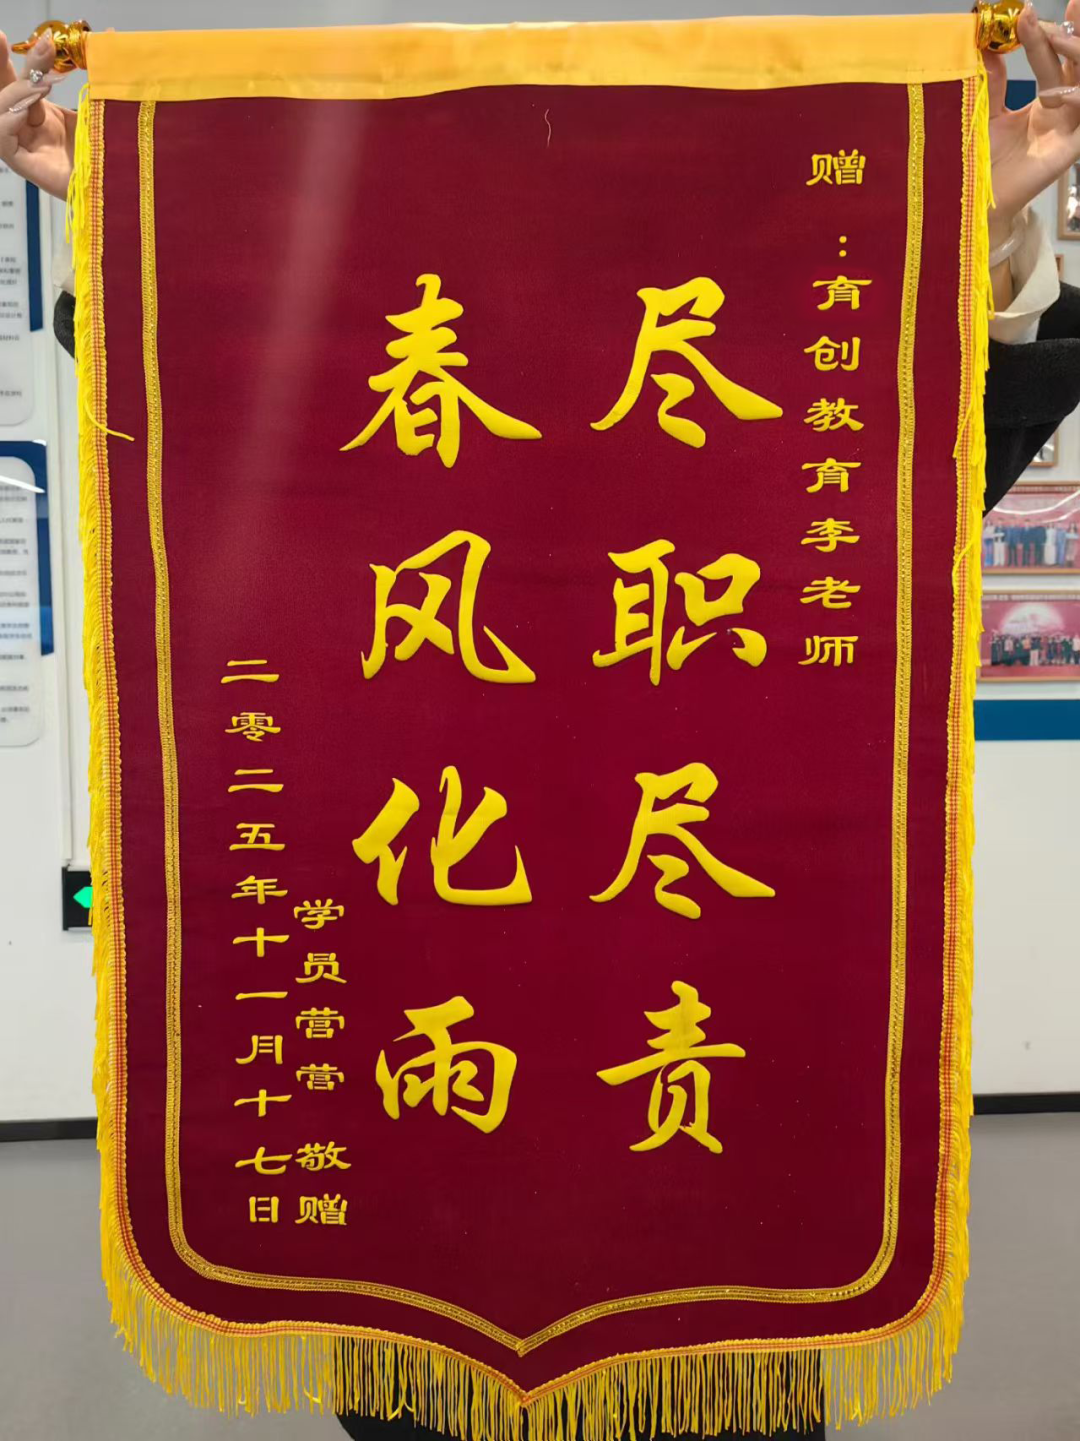 赠：育创教育李老师
尽职尽责
春风化雨
学员营营 敬赠
二零二五年十一月十七日